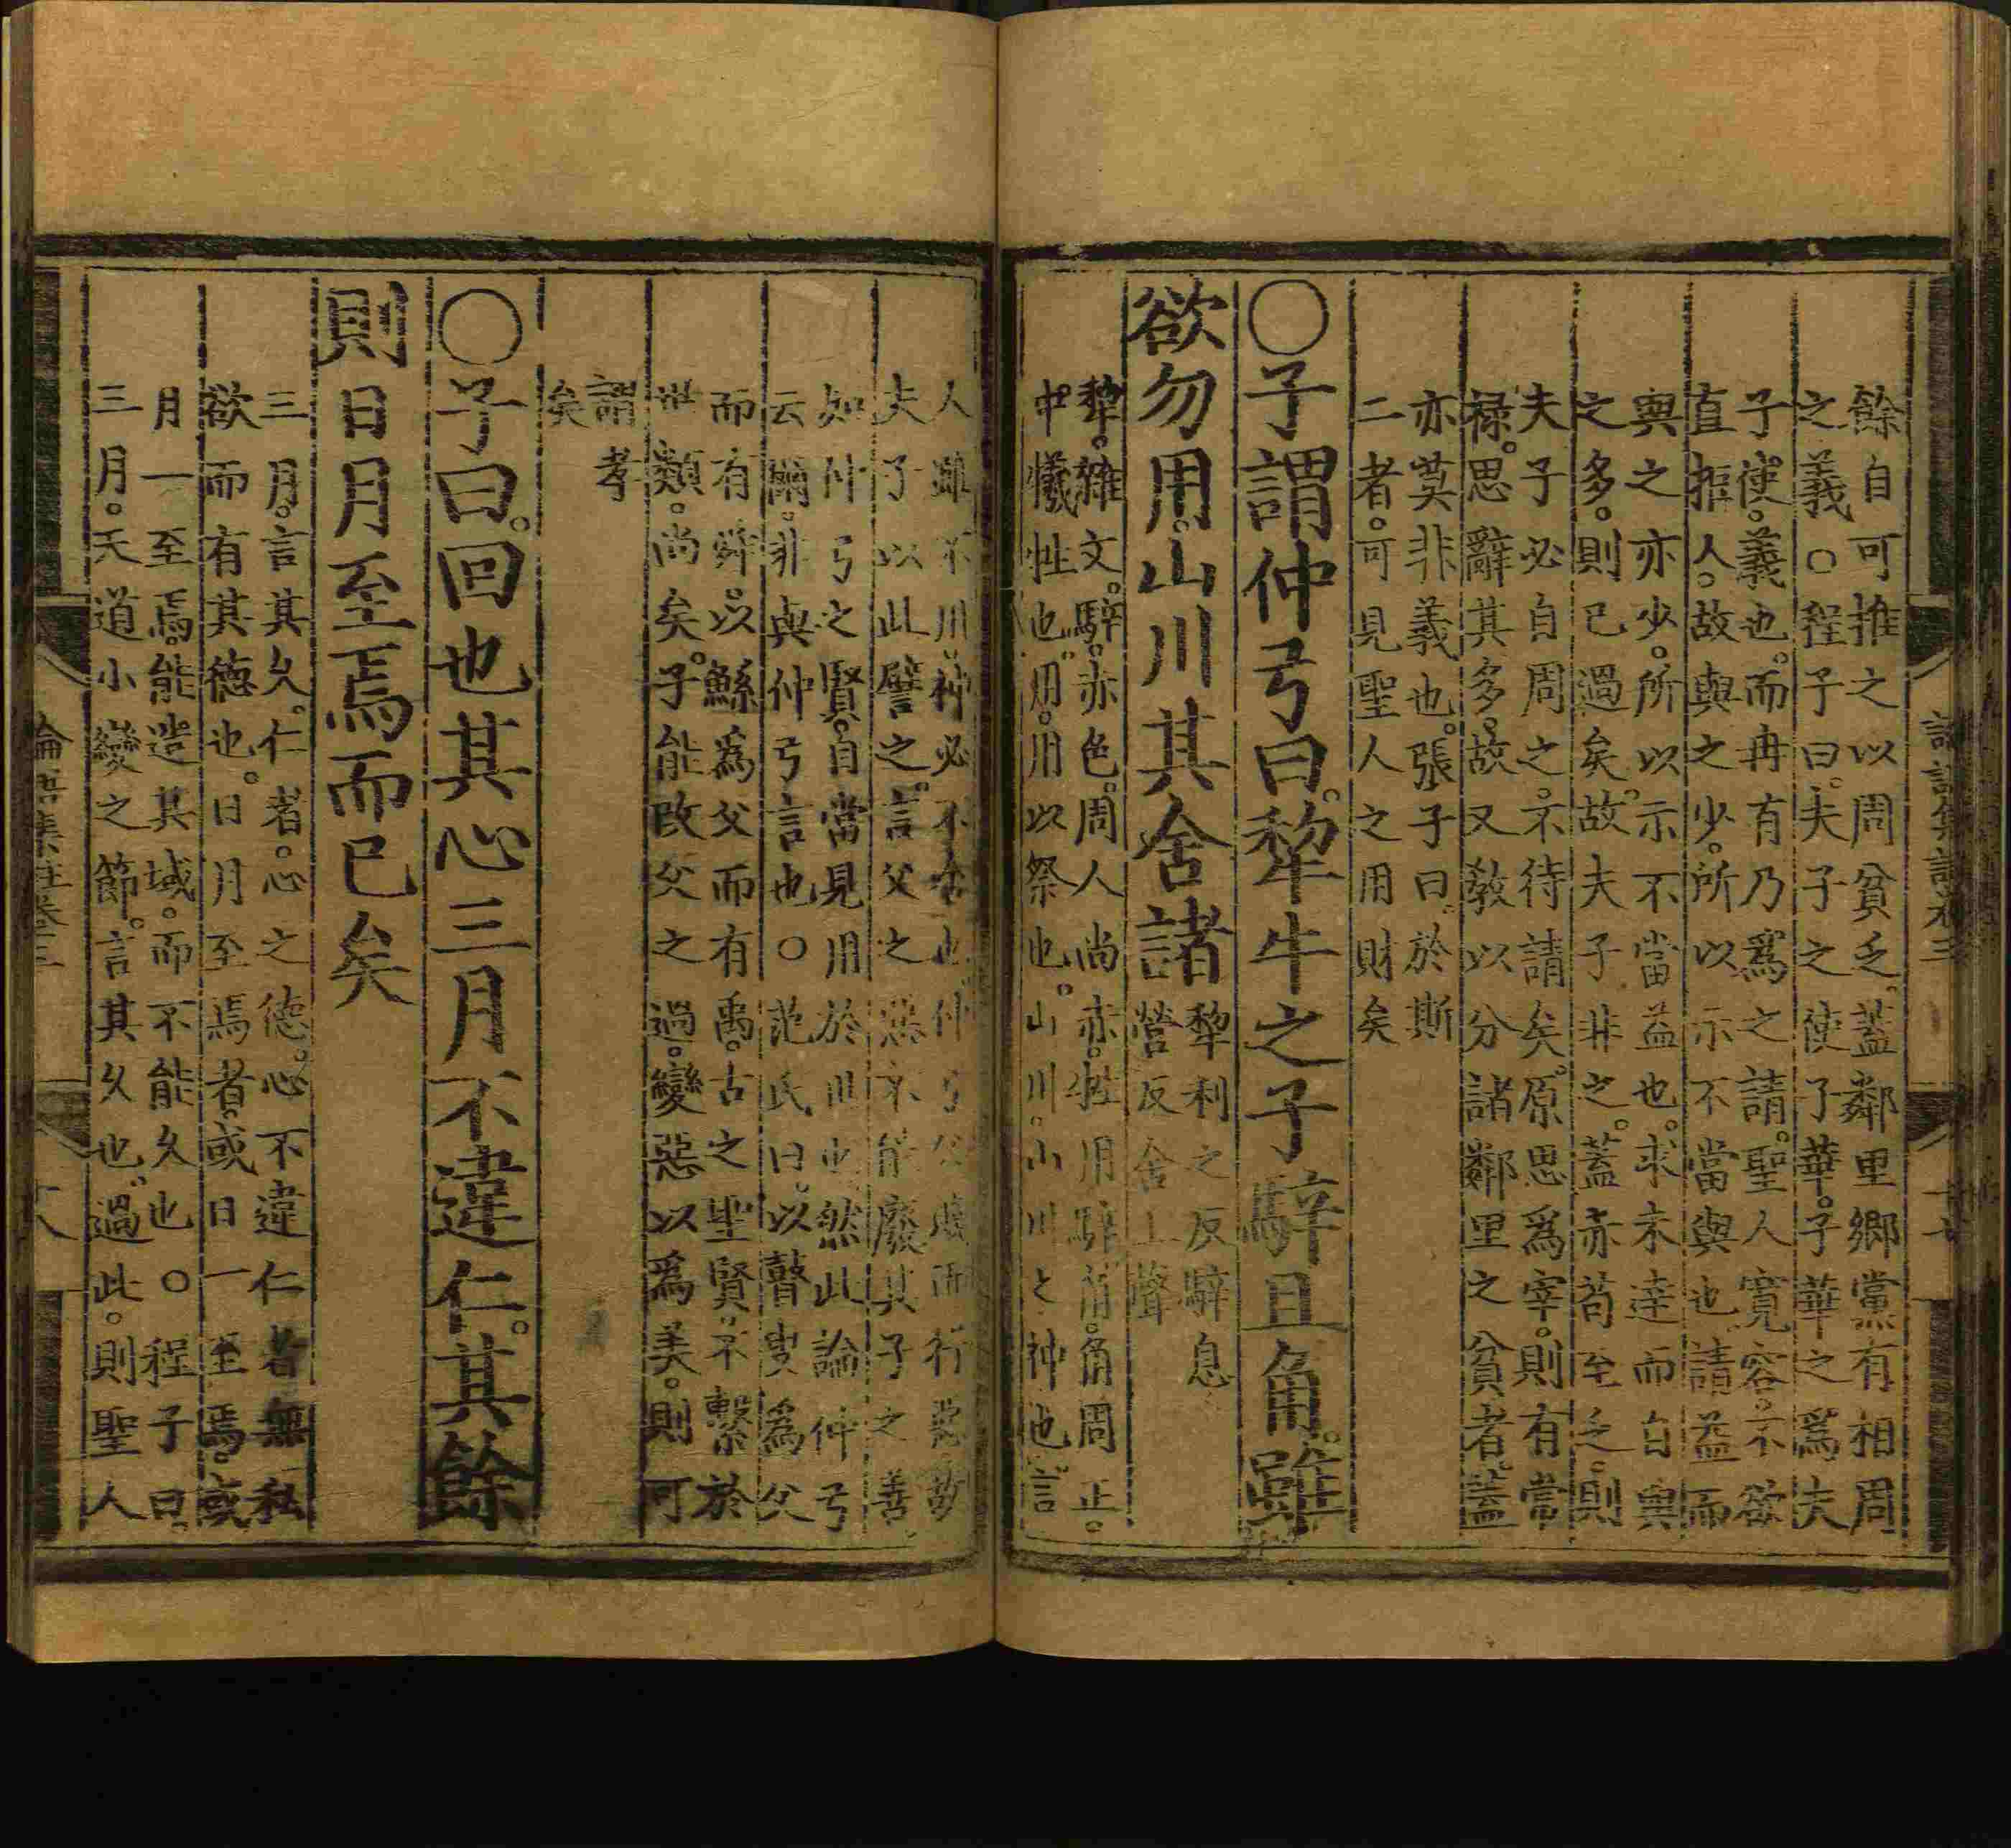 餘自可推之以周貧乏。蓋鄰里鄉黨有相周
之義○程子曰。夫子之使子華。子華之爲夫
子使。義也。而冉有乃爲之請。聖人寬容。不欲
直拒人。故與之少。所以示不當與也。請益而
與之亦少。所以示不當益也。求未達而自與
之多。則已過矣。故夫子非之。蓋赤苟至乏。則
夫子必自周之。不待請矣。原思爲宰。則有常
祿。思辭其多。故又敎以分諸鄰里之貧者。蓋
亦莫非義也。張子曰。於斯
二者。可見聖人之用財矣
○子謂仲弓曰。犂牛之子騂且角。雖
欲勿用。山川其舍諸
犂利之反騂息
營反舍上聲
犂。雜文。騂。赤色。周人尚赤。牲用騂。角。角周正。
中犧牲也。用。用以祭也。山川。山川之神也。言
人雖不用。神必不舍也。仲弓父賤而行惡。故
夫子以此譬之。言父之惡。不能廢其子之善
如仲弓之賢。自當見用於世也。然此論仲弓
云爾。非與仲弓言也○范氏曰。以瞽叟爲父
而有舜。以鯀爲父而有禹。古之聖賢。不繫於
世類。尚矣。子能改父之過。變惡以爲美。則可
謂孝
矣
○子曰。回也其心三月不違仁。其餘
則日月至焉而已矣
三月。言其久。仁者。心之德。心不違仁者。無私
欲而有其德也。日月至焉者。或日一至焉。或
月一至焉。能造其域。而不能久也○程子曰。
三月。天道小變之節。言其久也。過此。則聖人
論語集註卷三
十八